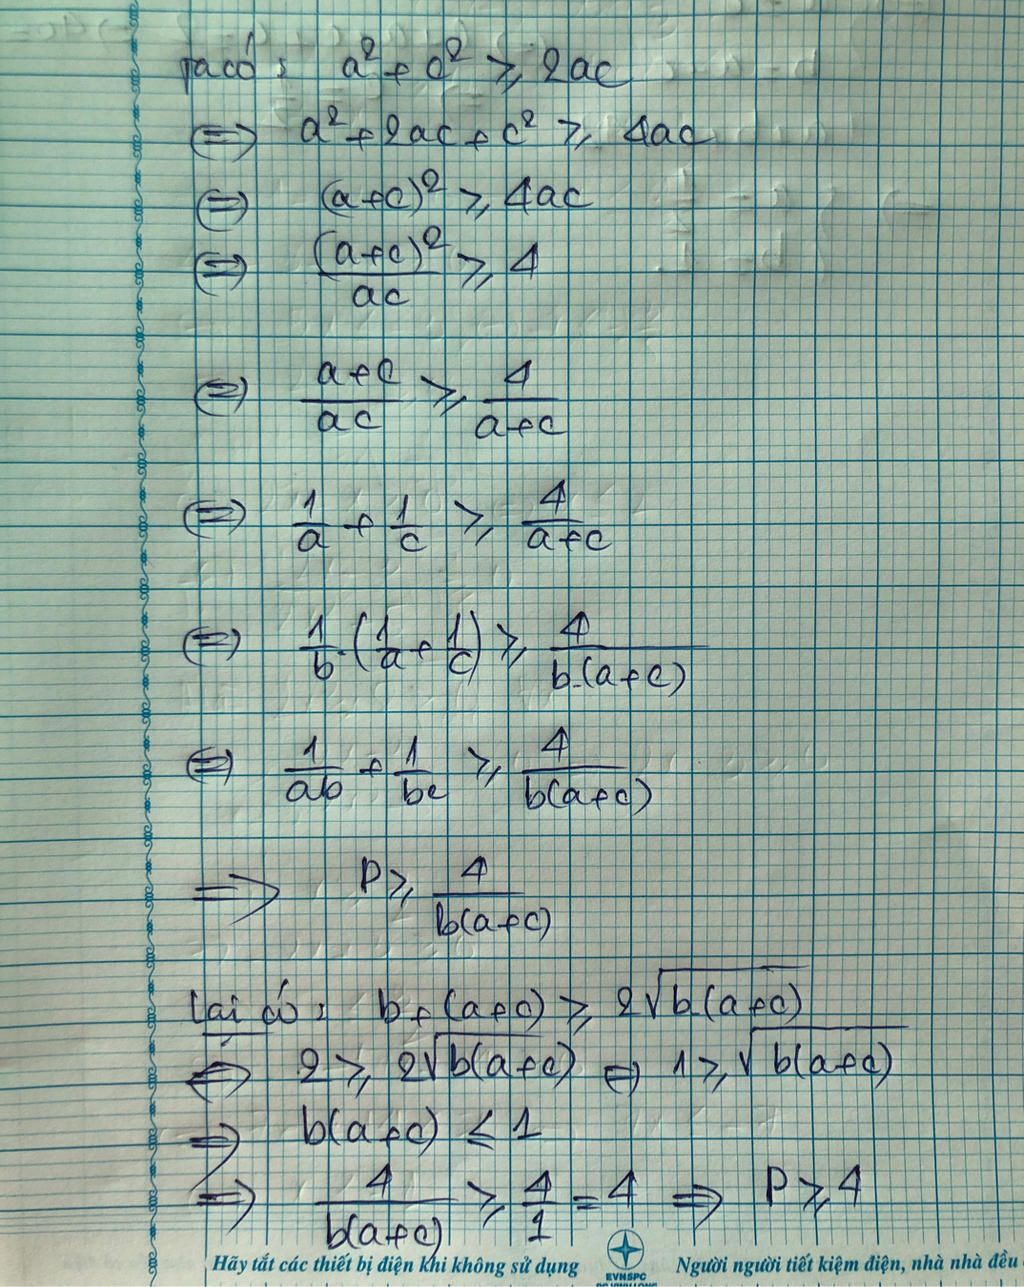 Ta có: a² + c² ⩾ 2ac
⇔ a² + 2ac + c² ⩾ 4ac
⇔ (a+c)² ⩾ 4ac
⇔ (a+c)²/ac ⩾ 4
⇔ (a+c)/ac ⩾ 4/(a+c)
⇔ 1/a + 1/c ⩾ 4/(a+c)
⇔ 1/b.(1/a + 1/c) ⩾ 4/(b.(a+c))
⇔ 1/ab + 1/bc ⩾ 4/(b(a+c))
⇒ P ⩾ 4/(b(a+c))
Lại có: b + (a+c) ⩾ 2√(b(a+c))
⇔ 2 ⩾ 2√(b(a+c)) ⇔ 1 ⩾ √(b(a+c))
⇒ b(a+c) ≤ 1
⇒ 4/(b(a+c)) ⩾ 4/1 = 4 ⇒ P ⩾ 4
Hãy tắt các thiết bị điện khi không sử dụng EVNSPC Người người tiết kiệm điện, nhà nhà đều